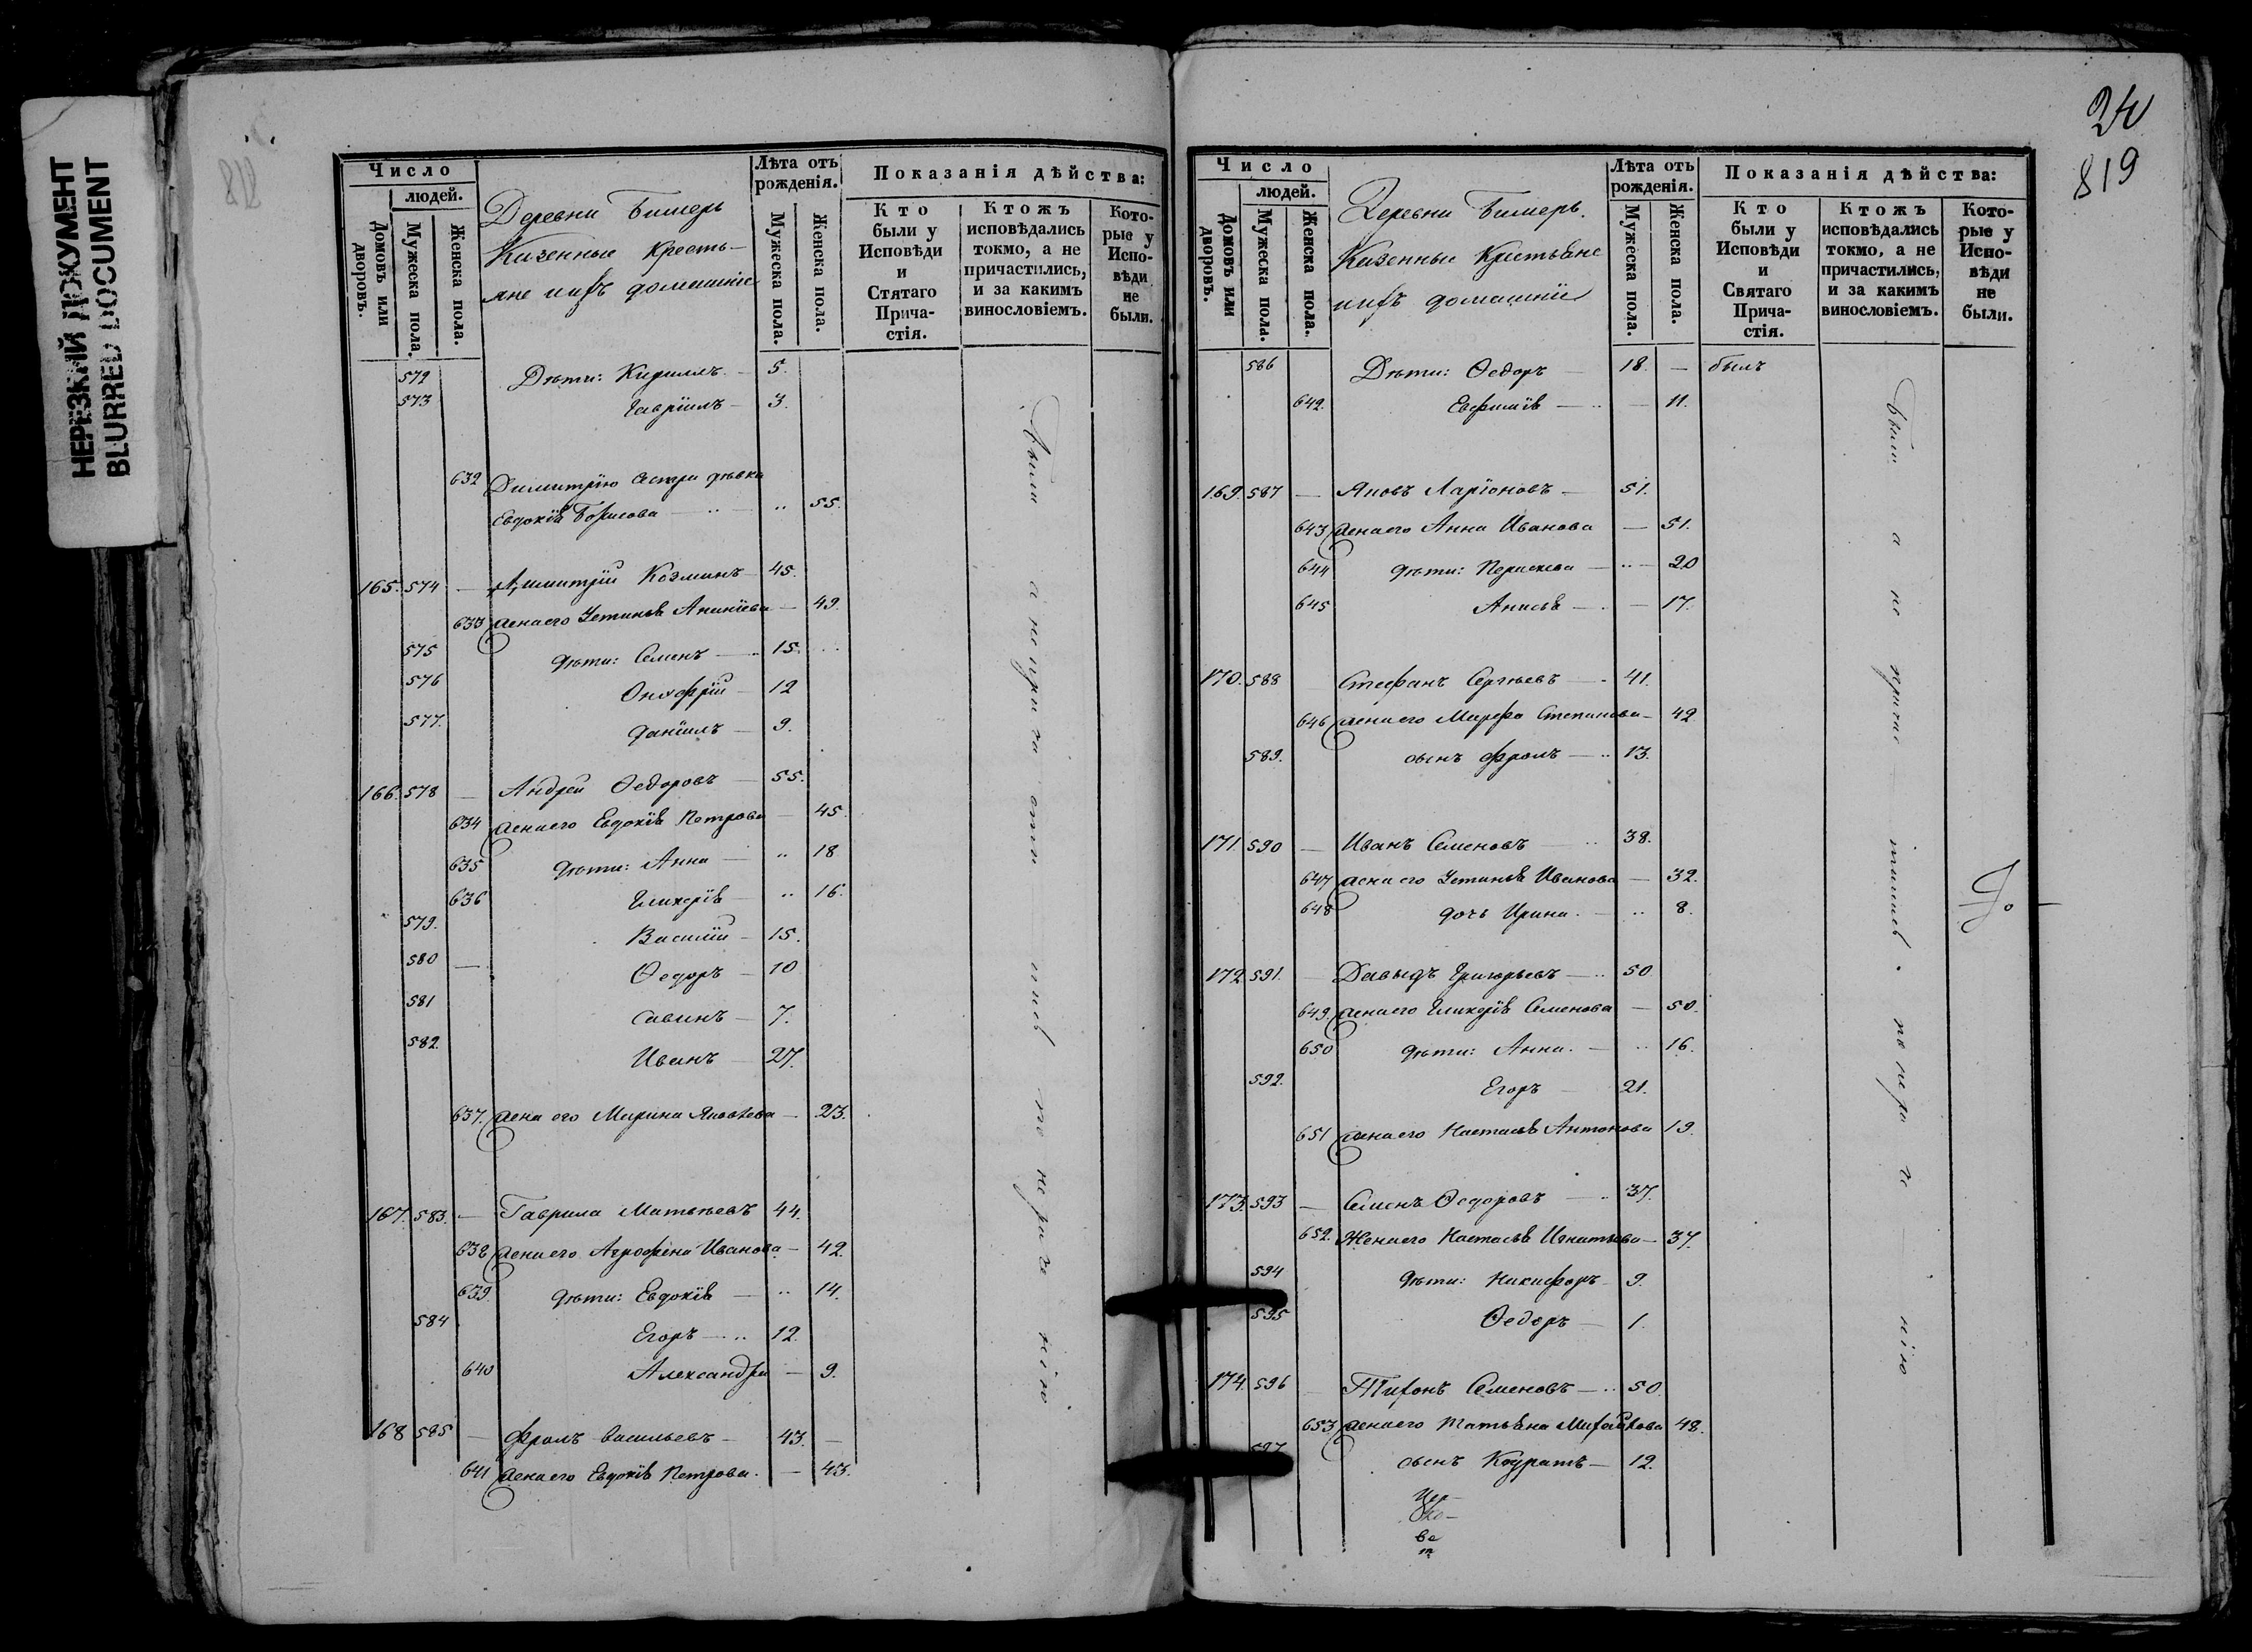 НЕРЕЗКИЙ ДОКУМЕНТ
BLURRED DOCUMENT
Число
людей.
Домовъ или дворовъ.
Мужеска пола.
Женска пола.
Деревни Бимерь
Казенные Кресть-
яне ихъ домашніе
Лѣта отъ рожденія.
Мужеска пола.
Женска пола.
Показанія дѣйства:
Кто были у Исповѣди и Стятаго Прича-стія.
Ктожъ исповѣдались токмо, а не причастились, и за какимъ винословіемъ.
Кото-рые у Испо-вѣди не были.
572 Дѣти: Кирилъ 5.
573 Гавріилъ 3.
632 Димитрію сестра дѣвка
Евдокія Борисова 55.
165. 574 Димитрій Козминъ 45.
633 жена его Устинья Ананіева 49.
575 Дѣти: Семенъ 15.
576 Онофрій 12
577. Даніилъ 9.
166. 578 Андрей Ѳедоровъ 55.
634 жена его Евдокія Петрова 45.
635 Дѣти: Анна 18
636 Гликерія 16.
579. Василій 15.
580 Ѳедоръ 10
581 Савинъ 7.
582. Иванъ 27.
637. жена его Марина Яковлева 23.
167. 583. Гаврила Матвѣевъ 44.
638 жена его Агрофена Иванова 42.
639. Дѣти: Евдокія 14.
584 Егоръ 12.
640 Александра 9.
168 585 Фролъ Васильевъ 43.
641 жена его Евдокія Петрова. 43.
24
819
Число
людей.
Домовъ или дворовъ.
Мужеска пола.
Женска пола.
Деревни Бимерь.
Казенные Крестьяне
ихъ домашніе
Лѣта отъ рожденія.
Мужеска пола.
Женска пола.
Показанія дѣйства:
Кто были у Исповѣди и Святаго Прича-стія.
Ктожъ исповѣдались токмо, а не причастились, и за какимъ винословіемъ.
Кото-рые у Испо-вѣди не были.
586 Дѣти: Ѳедоръ 18. былъ
642. Евфимія 11.
169. 587 Яковъ Ларіоновъ 51.
643 жена его Анна Иванова 51.
644 Дѣти: Параскева 20
645 Анисья 17.
170. 588 Стефанъ Сергѣевъ 41.
646 жена его Марфа Степанова 42.
589. сынъ Фролъ 13.
171. 590 Иванъ Семеновъ 38.
647 жена его Устинья Иванова 32.
648 дочь Ирина. 8.
172. 591. Давыдъ Григорьевъ 50
649. жена его Гликерія Семенова 50.
650 Дѣти: Анна. 16.
592. Егоръ 21.
651 жена его Настасья Антонова 19.
173. 593 Семенъ Ѳедоровъ 37.
652. Жена его Настасья Игнатьева 37.
594 Дѣти: Никифоръ 9.
595 Ѳедоръ 1.
174. 596 Тихонъ Семеновъ 50.
653 жена его Татьяна Михайлова 48.
597 сынъ Кодратъ 12.